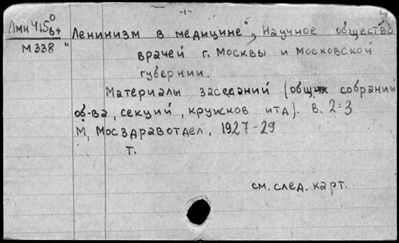 Лмн 415
М 338
"Ленинизм в медицине", Научное общество
врачей г. Москвы и Московской
губернии.
Материалы заседаний (общих собраний
об-ва, секций, кружков итд). В. 2-3
М, Мосздравотдел, 1927-29
Т.
см. след. карт.